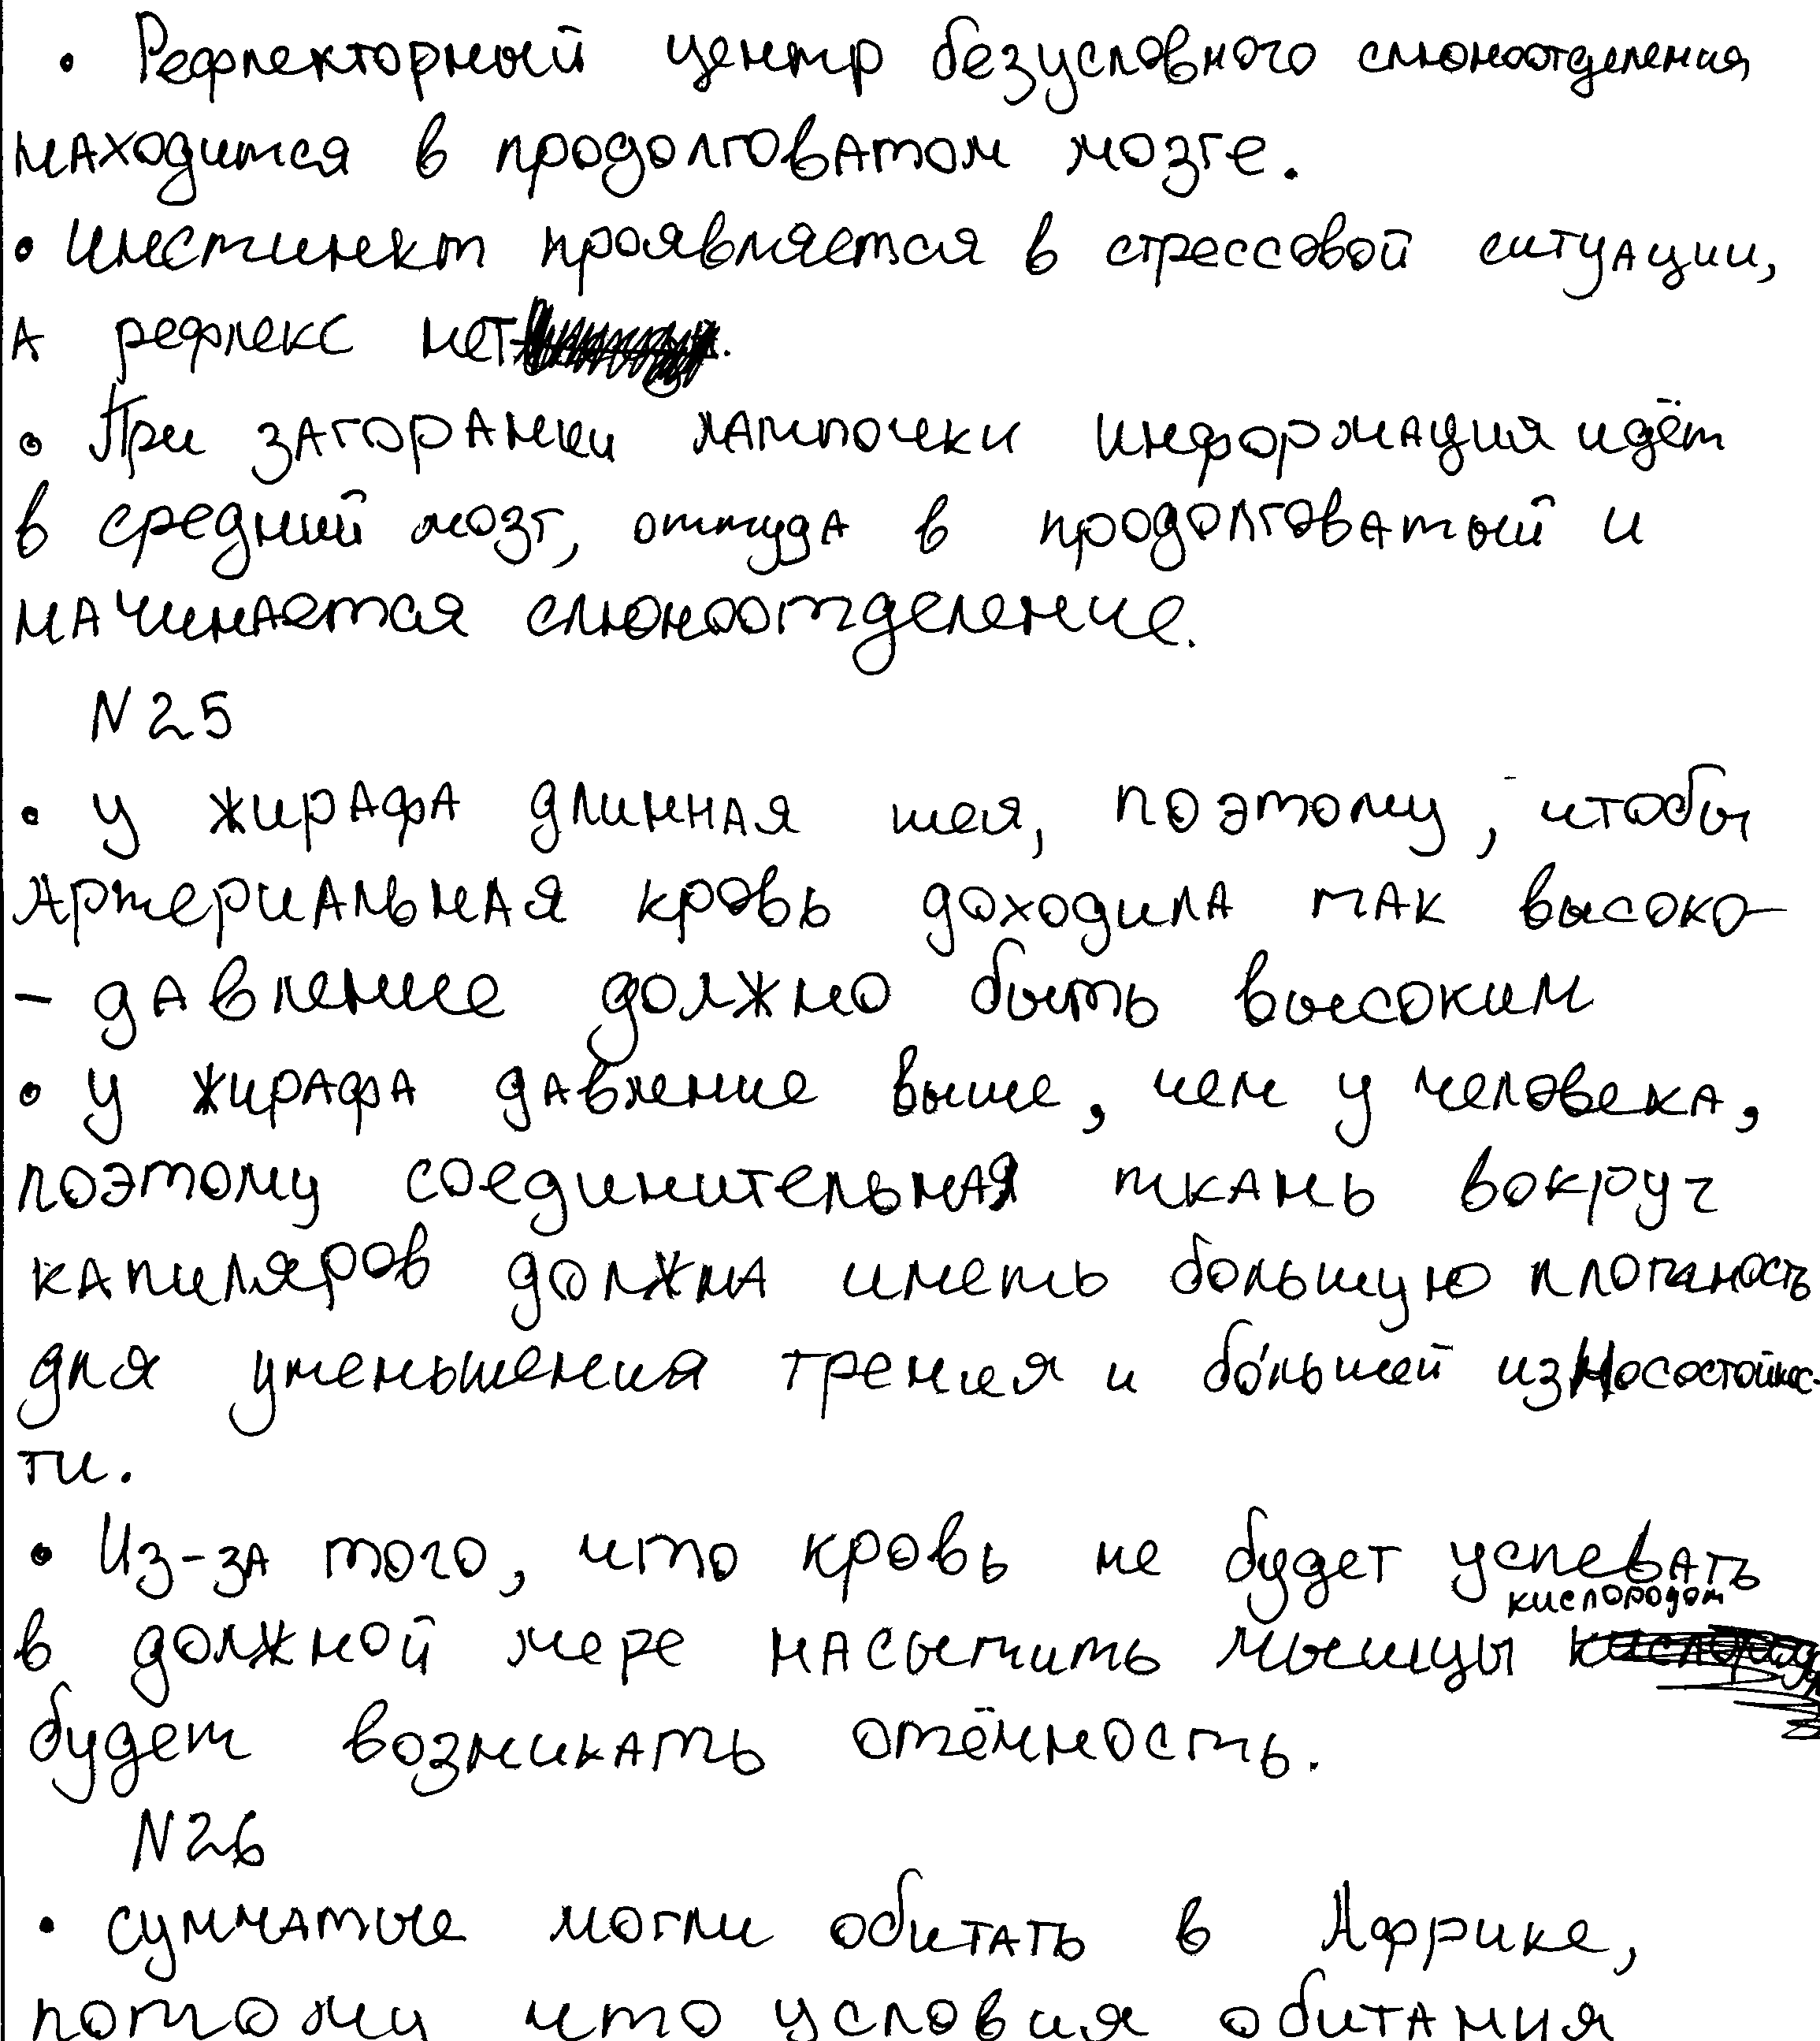 • Рефлекторный центр безусловного слюноотделения
находится в продолговатом мозге.
• Инстинкт проявляется в стрессовой ситуации,
а рефлекс нет.
• При загорании лампочки информация идёт
в средний мозг, оттуда в продолговатый и
начинается слюноотделение.
N 25
• у жирафа длинная шея, поэтому, чтобы
артериальная кровь доходила так высоко-
- давление должно быть высоким
• у жирафа давление выше, чем у человека,
поэтому соединительная ткань вокруг
капиляров должна иметь большую плотность
для уменьшения трения и бо́льшей износостойкос-
ти.
• Из-за того, что кровь не будет успевать
в должной мере насытить мышцы кислородом
будет возникать отённость.
N26
• сумчатые могли обитать в Африке,
потому что условия обитания